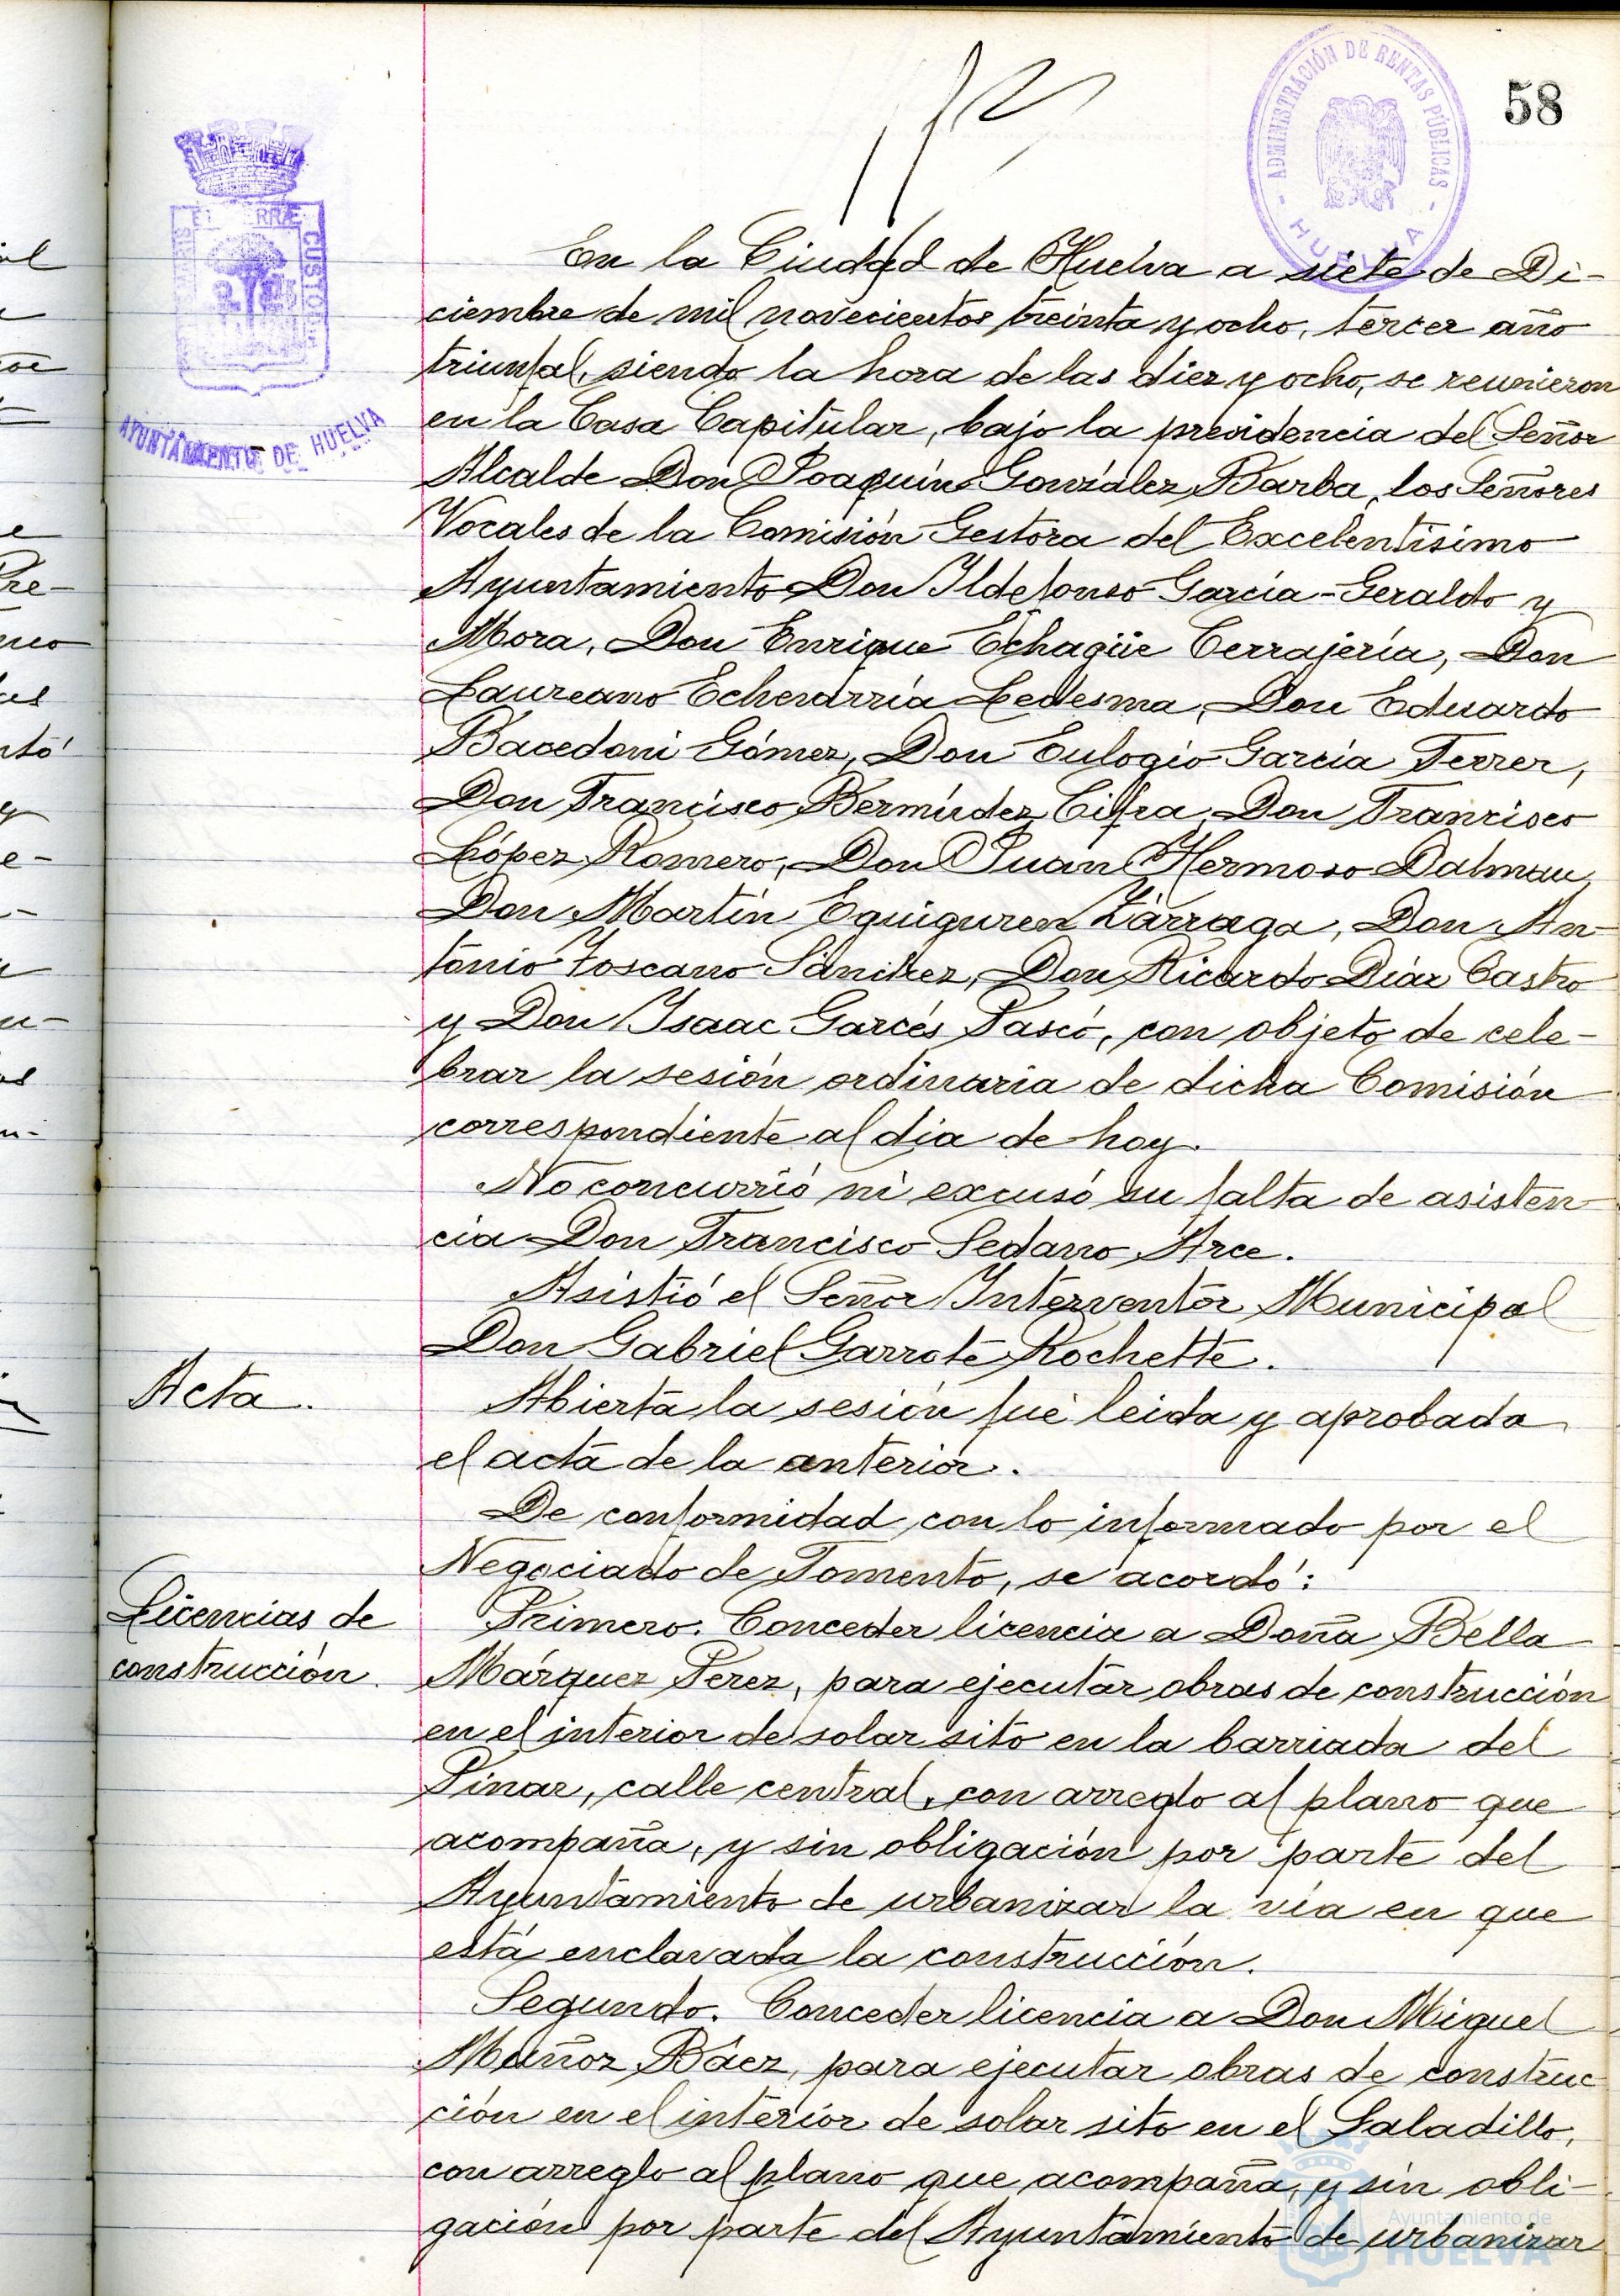 58
ADMINISTRACIÓN DE RENTAS PÚBLICAS
- HUELVA -
CUSTODIA
AYUNTAMIENTO DE HUELVA
En la Ciudad de Huelva a siete de Di-
ciembre de mil novecientos treinta y ocho, tercer año
triunfal, siendo la hora de las diez y ocho, se reunieron
en la Casa Capitular, bajo la presidencia del Señor
Alcalde Don Joaquín González Barba, los Señores
Vocales de la Comisión Gestora del Excelentisimo
Ayuntamiento Don Ildefonso García-Geraldo y
Mora, Don Enrique Echagüe Cerrajería, Don
Laureano Echevarría Ledesma, Don Eduardo
Bacedoni Gómez, Don Eulogio García Ferrer,
Don Francisco Bermúdez Cifra, Don Francisco
López Romero, Don Juan Hermoso Dalmau,
Don Martín Eguiguren Zárraga, Don An-
tonio Toscano Sánchez, Don Ricardo Díaz Castro
y Don Isaac Garcés Pascó, con objeto de cele-
brar la sesión ordinaria de dicha Comisión
correspondiente al dia de hoy.
No concurrió ni excusó su falta de asisten-
cia Don Francisco Sedano Arce.
Asistió el Señor Interventor Municipal
Don Gabriel Garrote Rochette.
Acta.
Abierta la sesión fué leida y aprobada
el acta de la anterior.
De conformidad con lo informado por el
Negociado de Fomento, se acordó:
Licencias de
construcción.
Primero. Conceder licencia a Doña Bella
Márquez Perez, para ejecutar obras de construcción
en el interior de solar sito en la barriada del
Pinar, calle central, con arreglo al plano que
acompaña, y sin obligación por parte del
Ayuntamiento de urbanizar la vía en que
está enclavada la construcción.
Segundo. Conceder licencia a Don Miguel
Muñoz Báez, para ejecutar obras de construc-
ción en el interior de solar sito en el Saladillo,
con arreglo al plano que acompaña, y sin obli-
gación por parte del Ayuntamiento de urbanizar
Ayuntamiento de
HUELVA